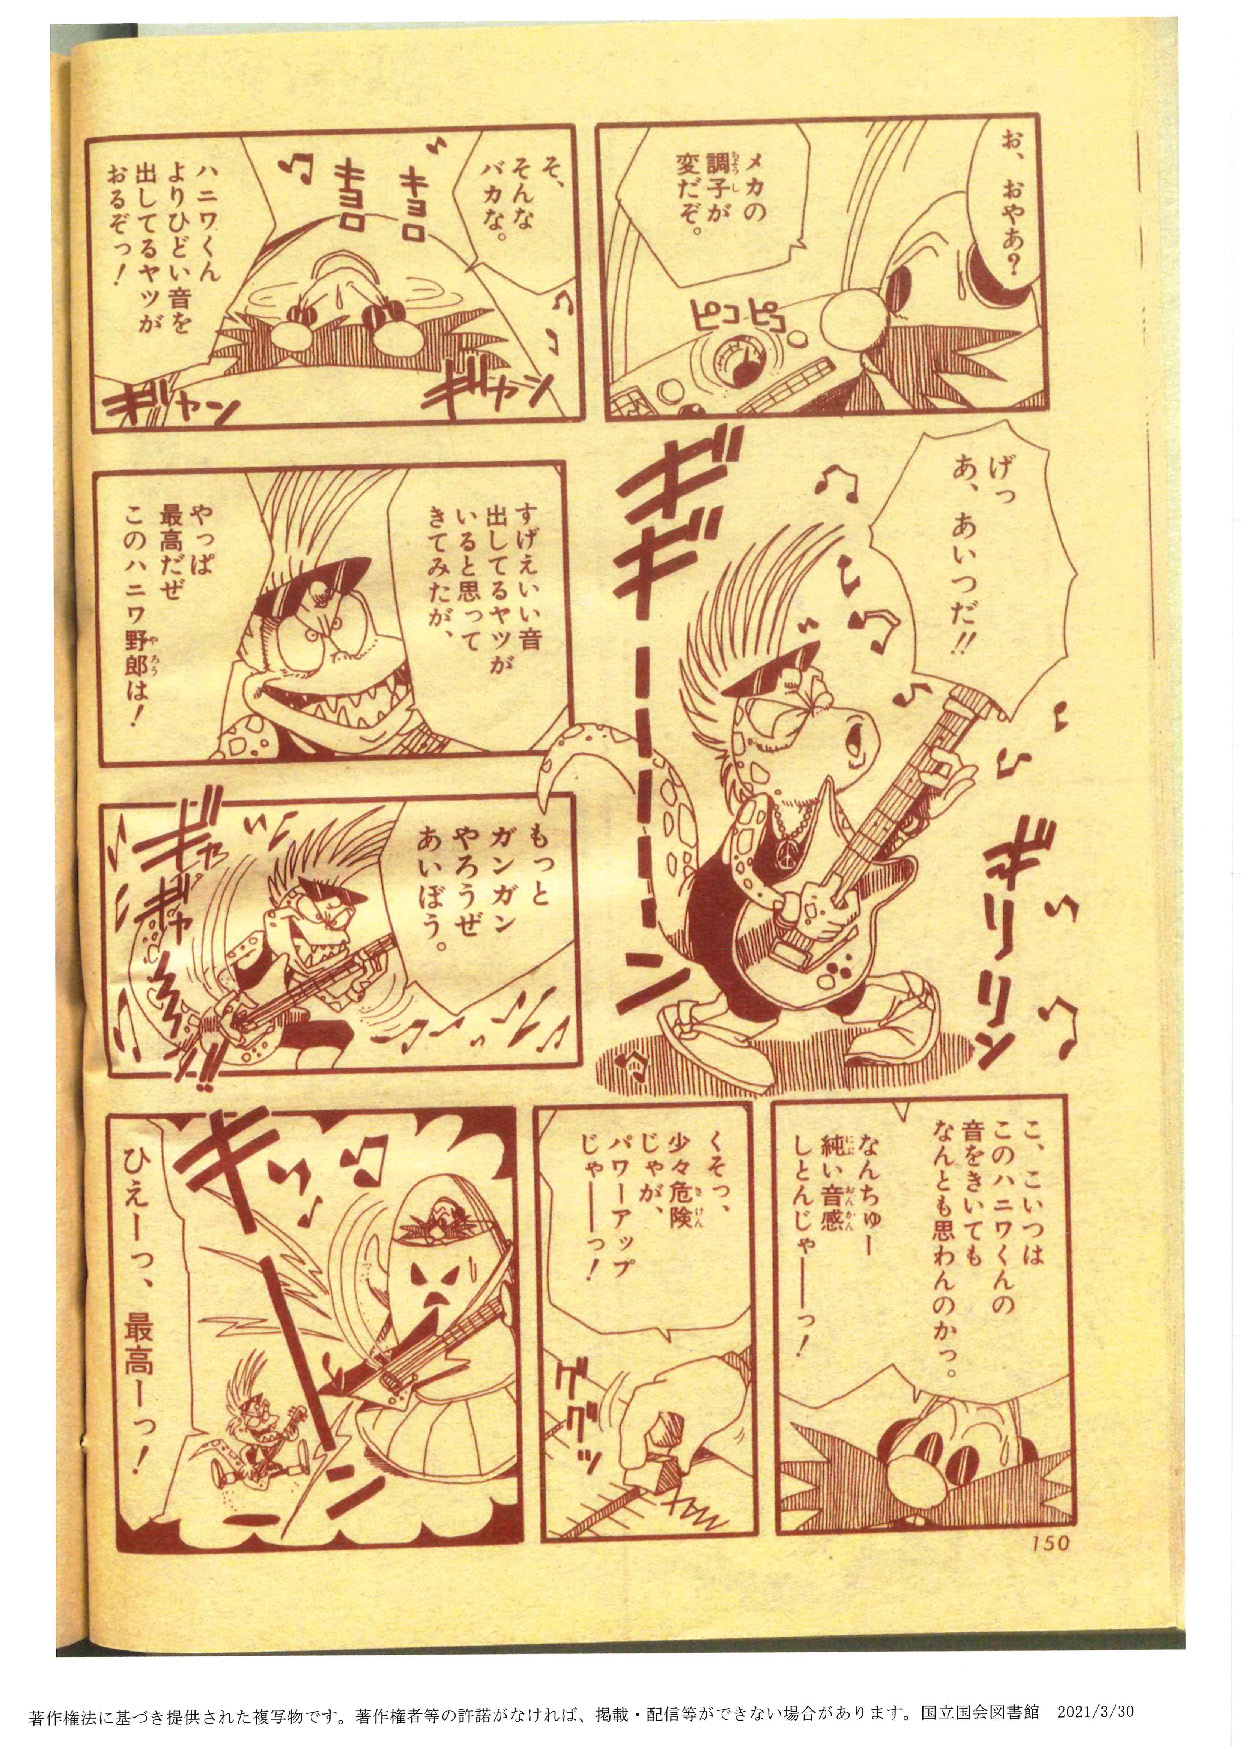 お、おやあ？
メカの
調子が
変だぞ。
ちょうし
ピコピコ
そ、
そんな
バカな。
キョロ
キョロ
ハニワくん
よりひどい音を
出してるヤツが
おるぞっ！
ギャン
ギャン
げっ
あ、あいつだ!!
ギギーーーーン
ギリリン
すげえいい音
出してるヤツが
いると思って
きてみたが、
やっぱ
最高だぜ
このハニワ野郎は！
やろう
もっと
ガンガン
やろうぜ
あいぼう。
ギャギャ
こ、こいつは
このハニワくんの
音をきいても
なんとも思わんのかっ。
なんちゅー
純い音感
しとんじゃーーっ！
にぶ
おんかん
くそっ、
少々危険
じゃが、
パワーアップ
じゃーーっ！
きけん
ゲゲッ
キーーン
ひえーっ、最高ーっ！
150
著作権法に基づき提供された複写物です。著作権者等の許諾がなければ、掲載・配信等ができない場合があります。国立国会図書館　2021/3/30